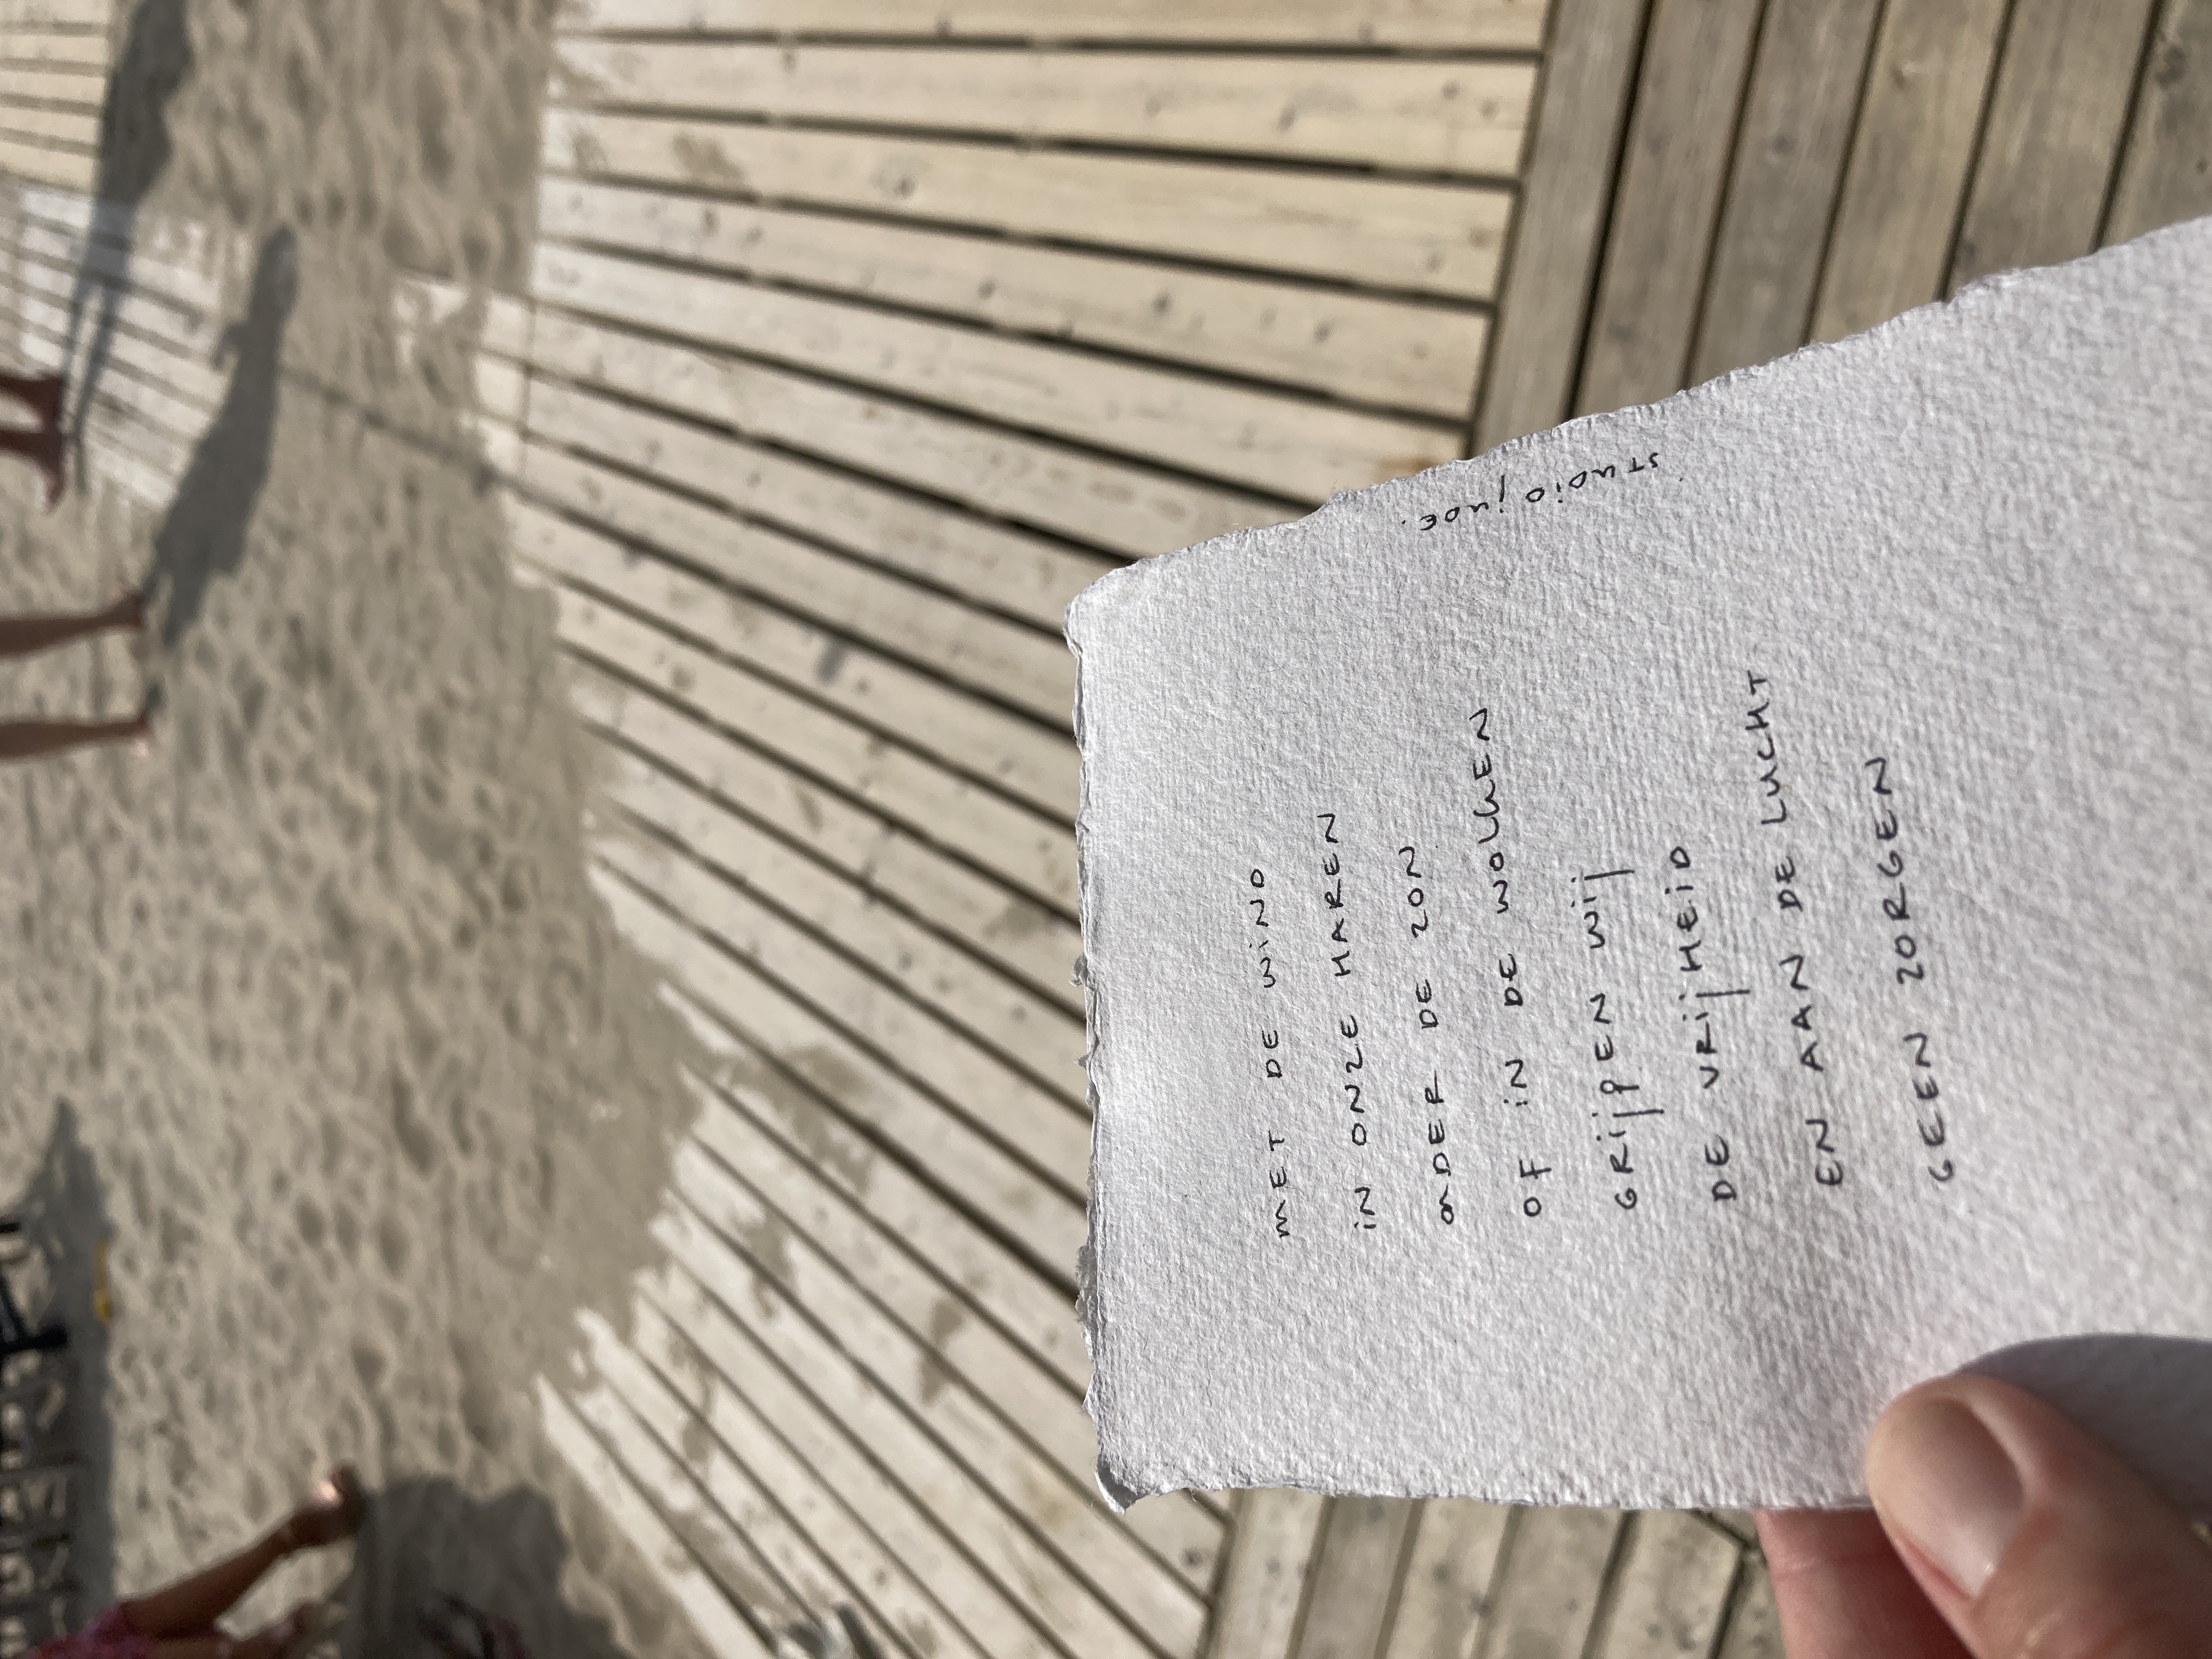 MET DE WIND
IN ONZE HAREN
ONDER DE ZON
OF IN DE WOLKEN
GRIJPEN WIJ
DE VRIJHEID
EN AAN DE LUCHT
GEEN ZORGEN
STUDIO JUDE.